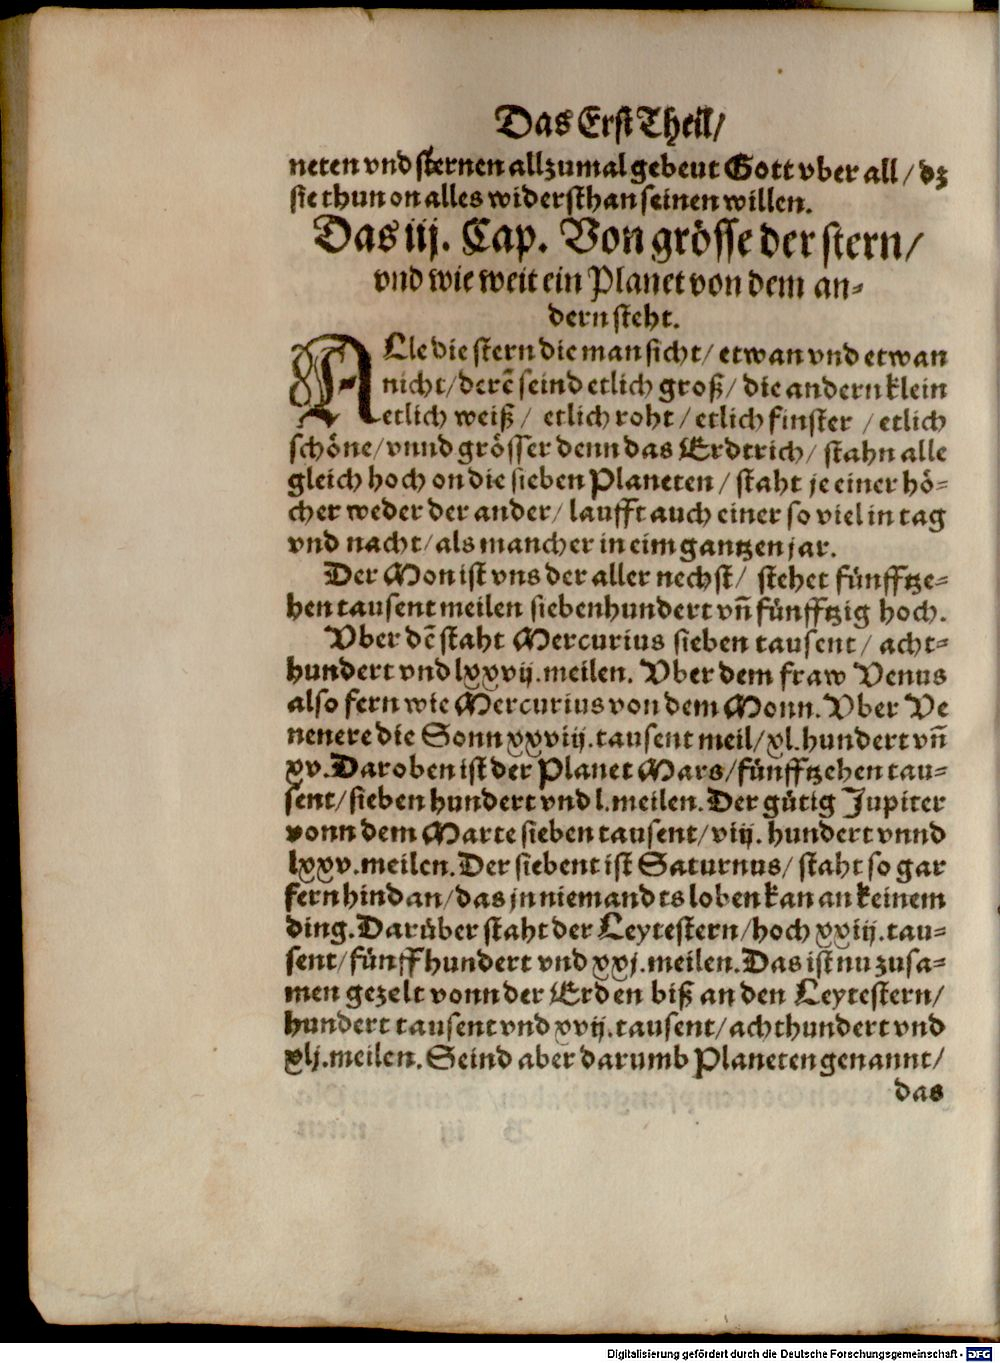 Das Erst Theil/
neten vnd sternen allzumal gebeut Gott vber all/ dz
sie thun on alles widersthan seinen willen.
Das iij. Cap. Von grösse der stern/
vnd wie weit ein Planet von dem an-
dern steht.
ALle die stern die man sicht/ etwan vnd etwan
nicht/ derē seind etlich groß/ die andern klein
etlich weiß/ etlich roht/ etlich finster/ etlich
schöne/ vnnd grösser denn das Erdtrich/ stahn alle
gleich hoch on die sieben Planeten/ staht je einer hö-
cher weder der ander/ laufft auch einer so viel in tag
vnd nacht/ als mancher in eim gantzen jar.
Der Mon ist vns der aller nechst/ stehet fünfftze-
hen tausent meilen siebenhundert vñ fünfftzig hoch.
Vber dē staht Mercurius sieben tausent/ acht-
hundert vnd lxxvij. meilen. Vber dem fraw Venus
also fern wie Mercurius von dem Monn. Vber Ve
nenere die Sonn xxviij. tausent meil/ xl. hundert vñ
xv. Daroben ist der Planet Mars/ fünfftzehen tau-
sent/ sieben hundert vnd l. meilen. Der gütig Jupiter
vonn dem Marte sieben tausent/ viij. hundert vnnd
lxxv. meilen. Der siebent ist Saturnus/ staht so gar
fern hindan/ das jn niemandts loben kan an keinem
ding. Darüber staht der Leytestern/ hoch xxiij. tau-
sent/ fünffhundert vnd xxj. meilen. Das ist nu zusa-
men gezelt vonn der Erden biß an den Leytestern/
hundert tausent vnd xvij. tausent/ achthundert vnd
xlj. meilen. Seind aber darumb Planeten genannt/
das
Digitalisierung gefördert durch die Deutsche Forschungsgemeinschaft - DFG